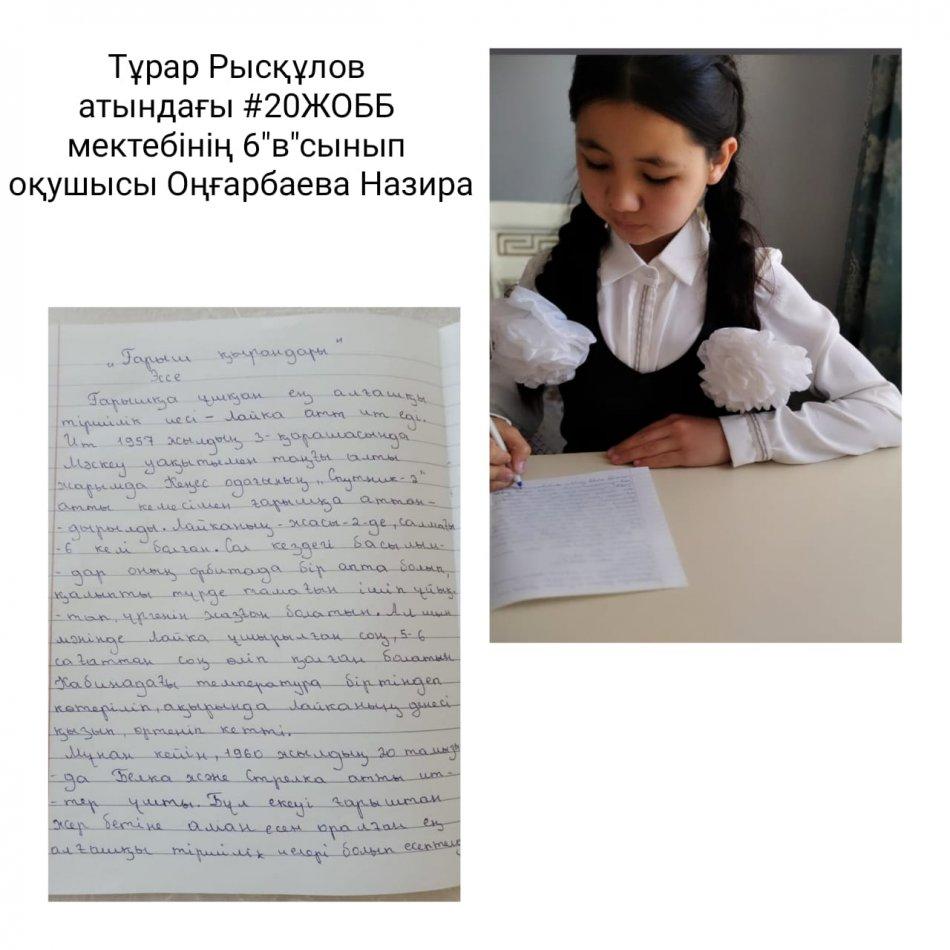 Тұрар Рысқұлов
атындағы #20ЖОББ
мектебінің 6"в"сынып
оқушысы Оңғарбаева Назира
„Ғарыш қырандары"
Эссе
Ғарышқа ұшқан ең алғашқы
тіршілік иесі – Лайка атты ит еді.
Ит 1957 жылдың 3-қарашасында
Мәскеу уақытымен таңғы алты
жарымда Кеңес одағының „Спутник-2"
атты кемесімен ғарышқа аттан-
-дырылды. Лайканың - жасы-2-де, салмағы
-6 келі болған. Сол кездегі басылым-
-дар оның орбитада бір апта болып,
қалыпты түрде тамағын ішіп ұйық-
-тап, үргенін жазған болатын. Ал шын
мәнінде Лайка ұшырылған соң, 5-6
сағаттан соң өліп қалған болатын
Кабинадағы температура біртіндеп
көтеріліп, ақырында Лайканың денесі
қызып, өртеніп кетті.
Мұнан кейін, 1960 жылдың 20 тамызын
-да Белка және Стрелка атты ит-
-тер ұшты. Бұл екеуі ғарыштан
жер бетіне аман есен оралған ең
алғашқы тіршілік иелері болып есептелед